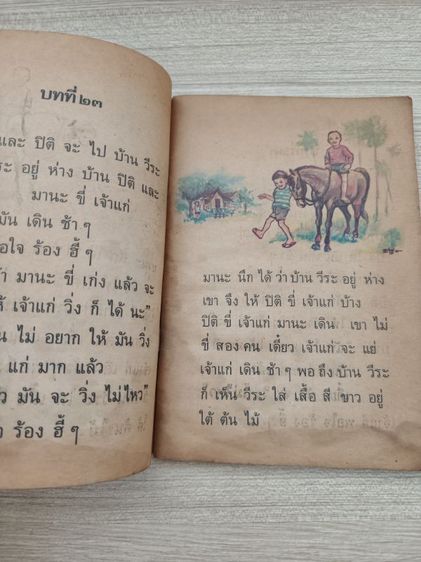 บทที่ ๒๓
และ ปิติ จะ ไป บ้าน วีระ
ระ อยู่ ห่าง บ้าน ปิติ และ
มานะ ขี่ เจ้าแก่
มัน เดิน ช้า ๆ
อใจ ร้อง ฮี้ ๆ
มานะ ขี่ เก่ง แล้ว จะ
ห้ เจ้าแก่ วิ่ง ก็ ได้ นะ”
ไม่ อยาก ให้ มัน วิ่ง
แก่ มาก แล้ว
มัน จะ วิ่ง ไม่ไหว”
ร้อง ฮี้ ๆ
มานะ นึก ได้ ว่า บ้าน วีระ อยู่ ห่าง
เขา จึง ให้ ปิติ ขี่ เจ้าแก่ บ้าง
ปิติ ขี่ เจ้าแก่ มานะ เดิน เขา ไม่
ขี่ สอง คน เดี๋ยว เจ้าแก่ จะ แย่
เจ้าแก่ เดิน ช้า ๆ พอ ถึง บ้าน วีระ
ก็ เห็น วีระ ใส่ เสื้อ สี ขาว อยู่
ใต้ ต้น ไม้